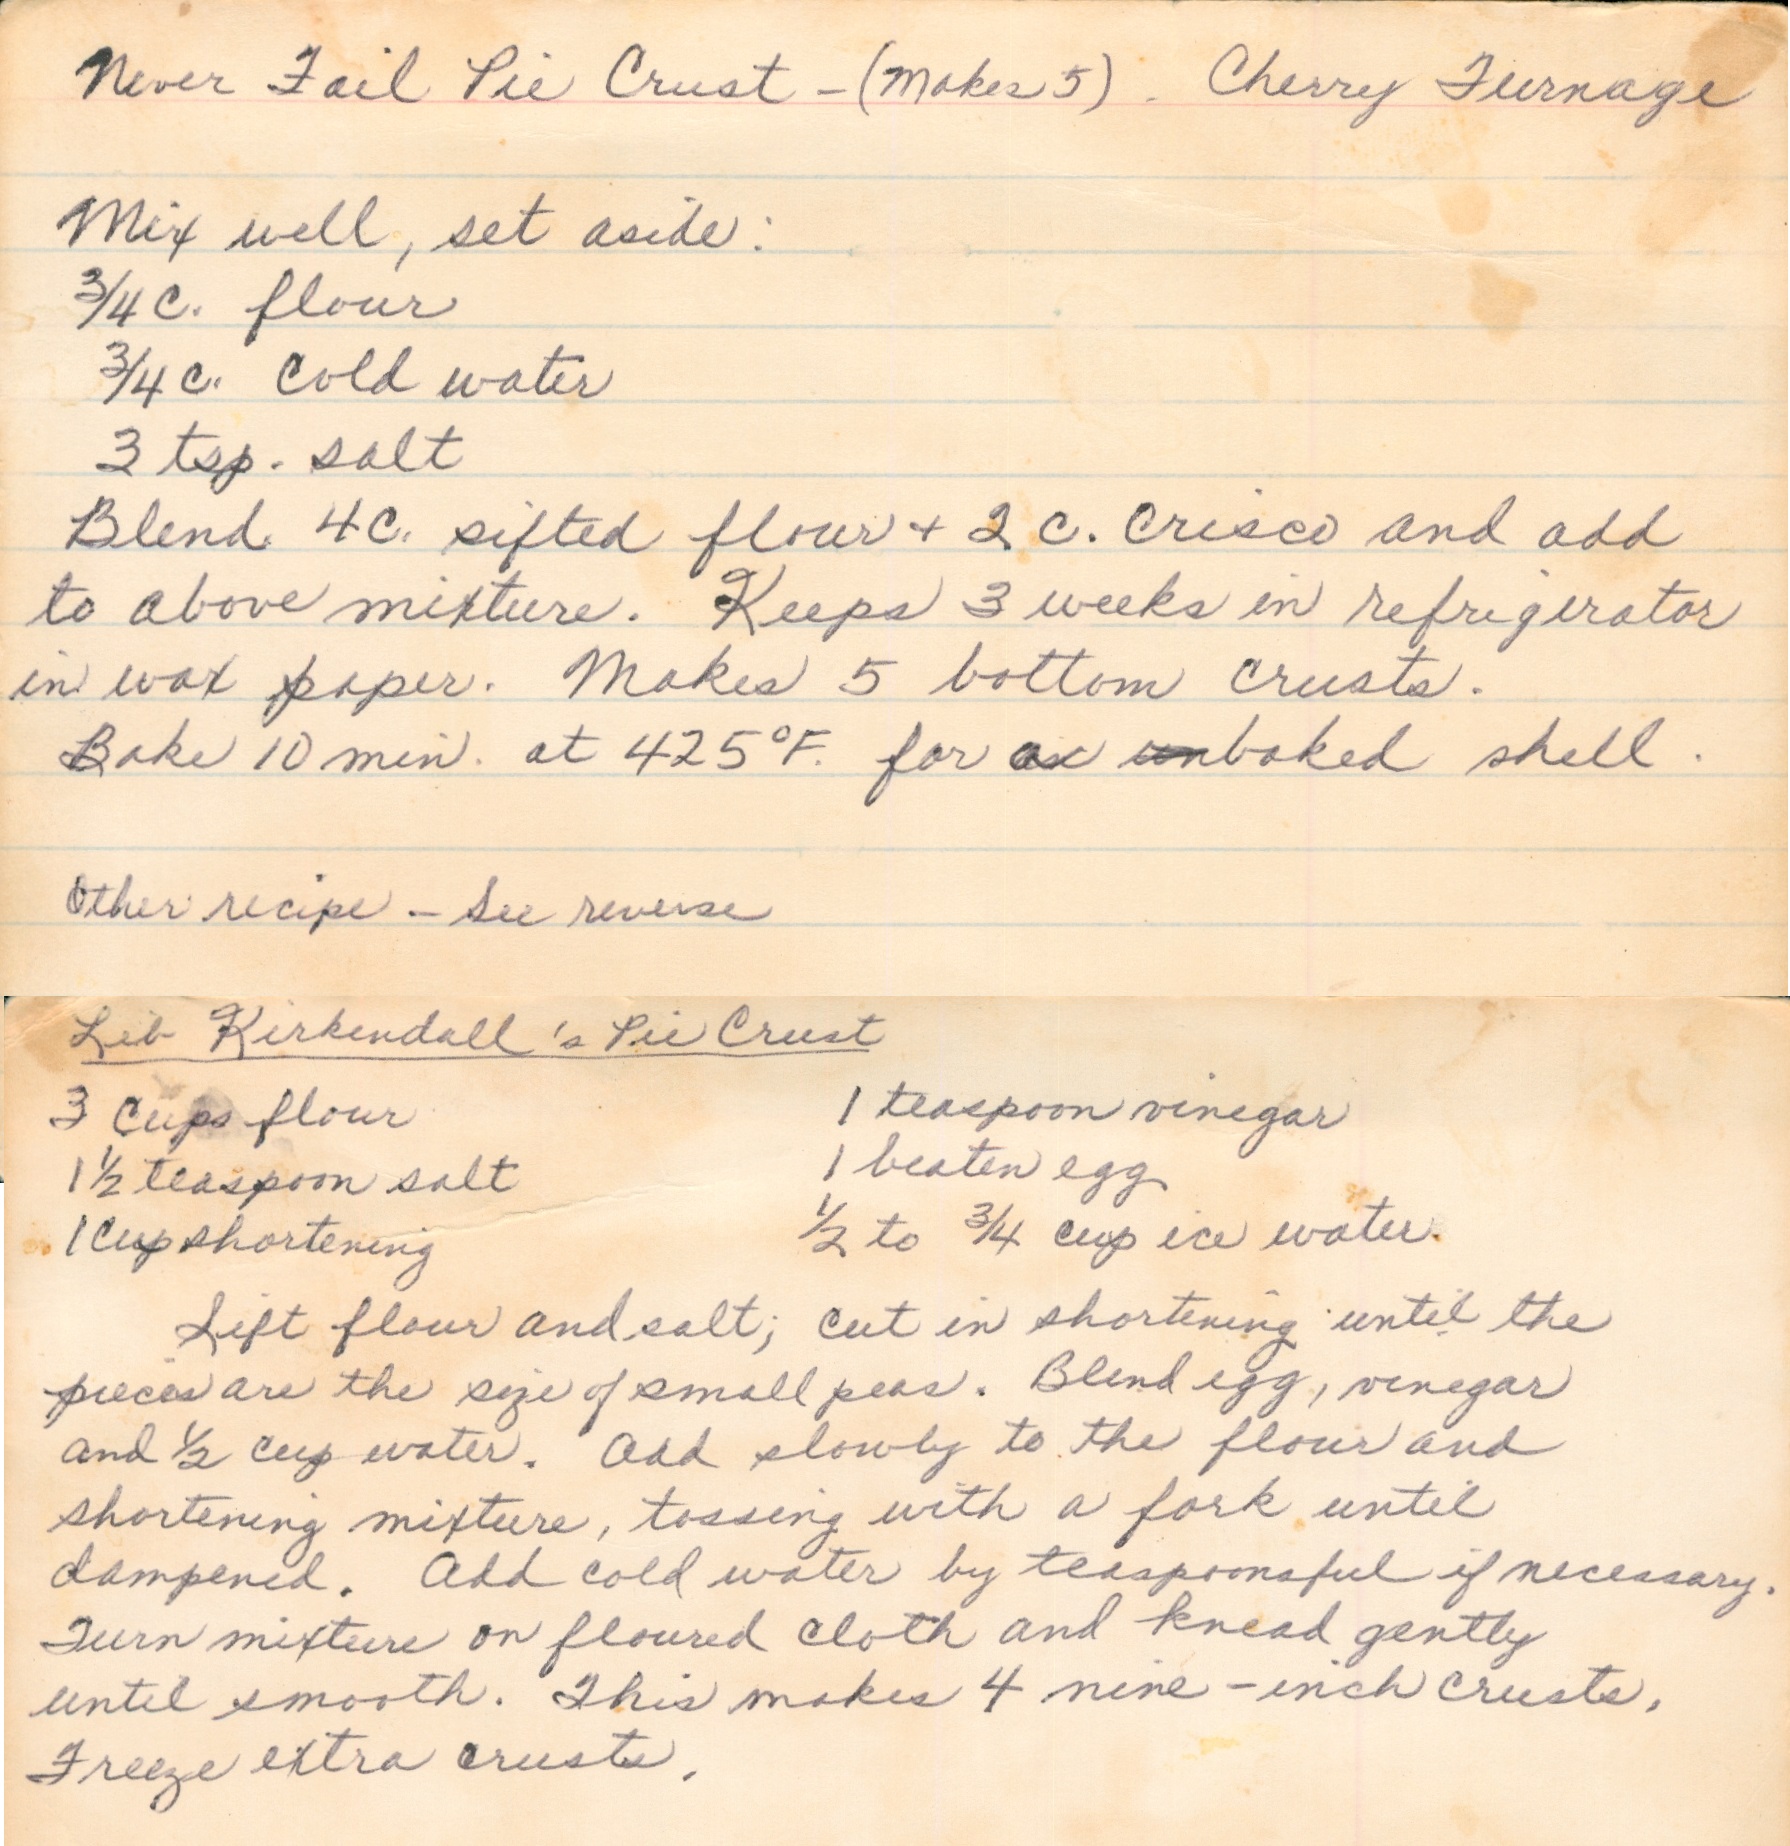 Never Fail Pie Crust - (Makes 5). Cherry Turnage
Mix well, set aside:
3/4 c. flour
3/4 c. cold water
3 tsp. salt
Blend 4 c. sifted flour + 2 c. Crisco and add
to above mixture. Keeps 3 weeks in refrigerator
in wax paper. Makes 5 bottom crusts.
Bake 10 min. at 425°F. for a baked shell.
Other recipe - See reverse
Lib Kirkendall's Pie Crust
3 cups flour
1 1/2 teaspoon salt
1 cup shortening
1 teaspoon vinegar
1 beaten egg
1/2 to 3/4 cup ice water.
Sift flour and salt; cut in shortening until the
pieces are the size of small peas. Blend egg, vinegar
and 1/2 cup water. Add slowly to the flour and
shortening mixture, tossing with a fork until
dampened. Add cold water by teaspoonsful if necessary.
Turn mixture on floured cloth and knead gently
until smooth. This makes 4 nine-inch crusts.
Freeze extra crusts.